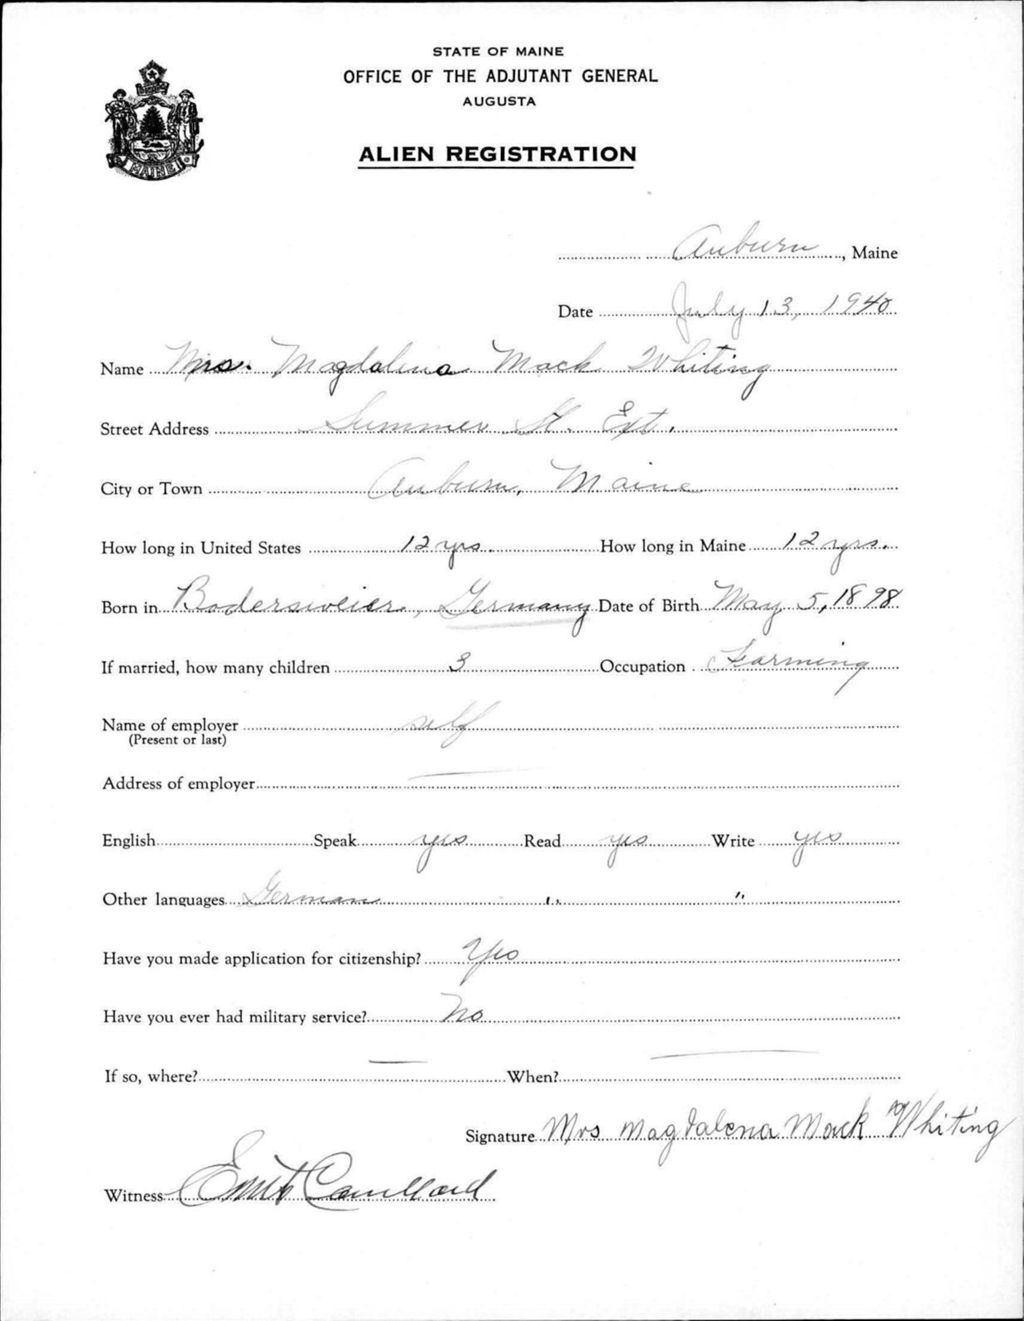 STATE OF MAINE
OFFICE OF THE ADJUTANT GENERAL
AUGUSTA
ALIEN REGISTRATION
MAINE
Auburn, Maine
Date July 13, 1940
Name Mrs. Magdalena Mack Whiting
Street Address Summer St. Ext.
City or Town Auburn, Maine
How long in United States 12 yrs. How long in Maine 12 yrs.
Born in Bodersweier, Germany Date of Birth May 5, 1898
If married, how many children 3 Occupation Farming
Name of employer self
(Present or last)
Address of employer —
English Speak yes Read yes Write yes
Other languages German " "
Have you made application for citizenship? Yes
Have you ever had military service? No
If so, where? — When? —
Signature Mrs Magdalena Mack Whiting
Witness